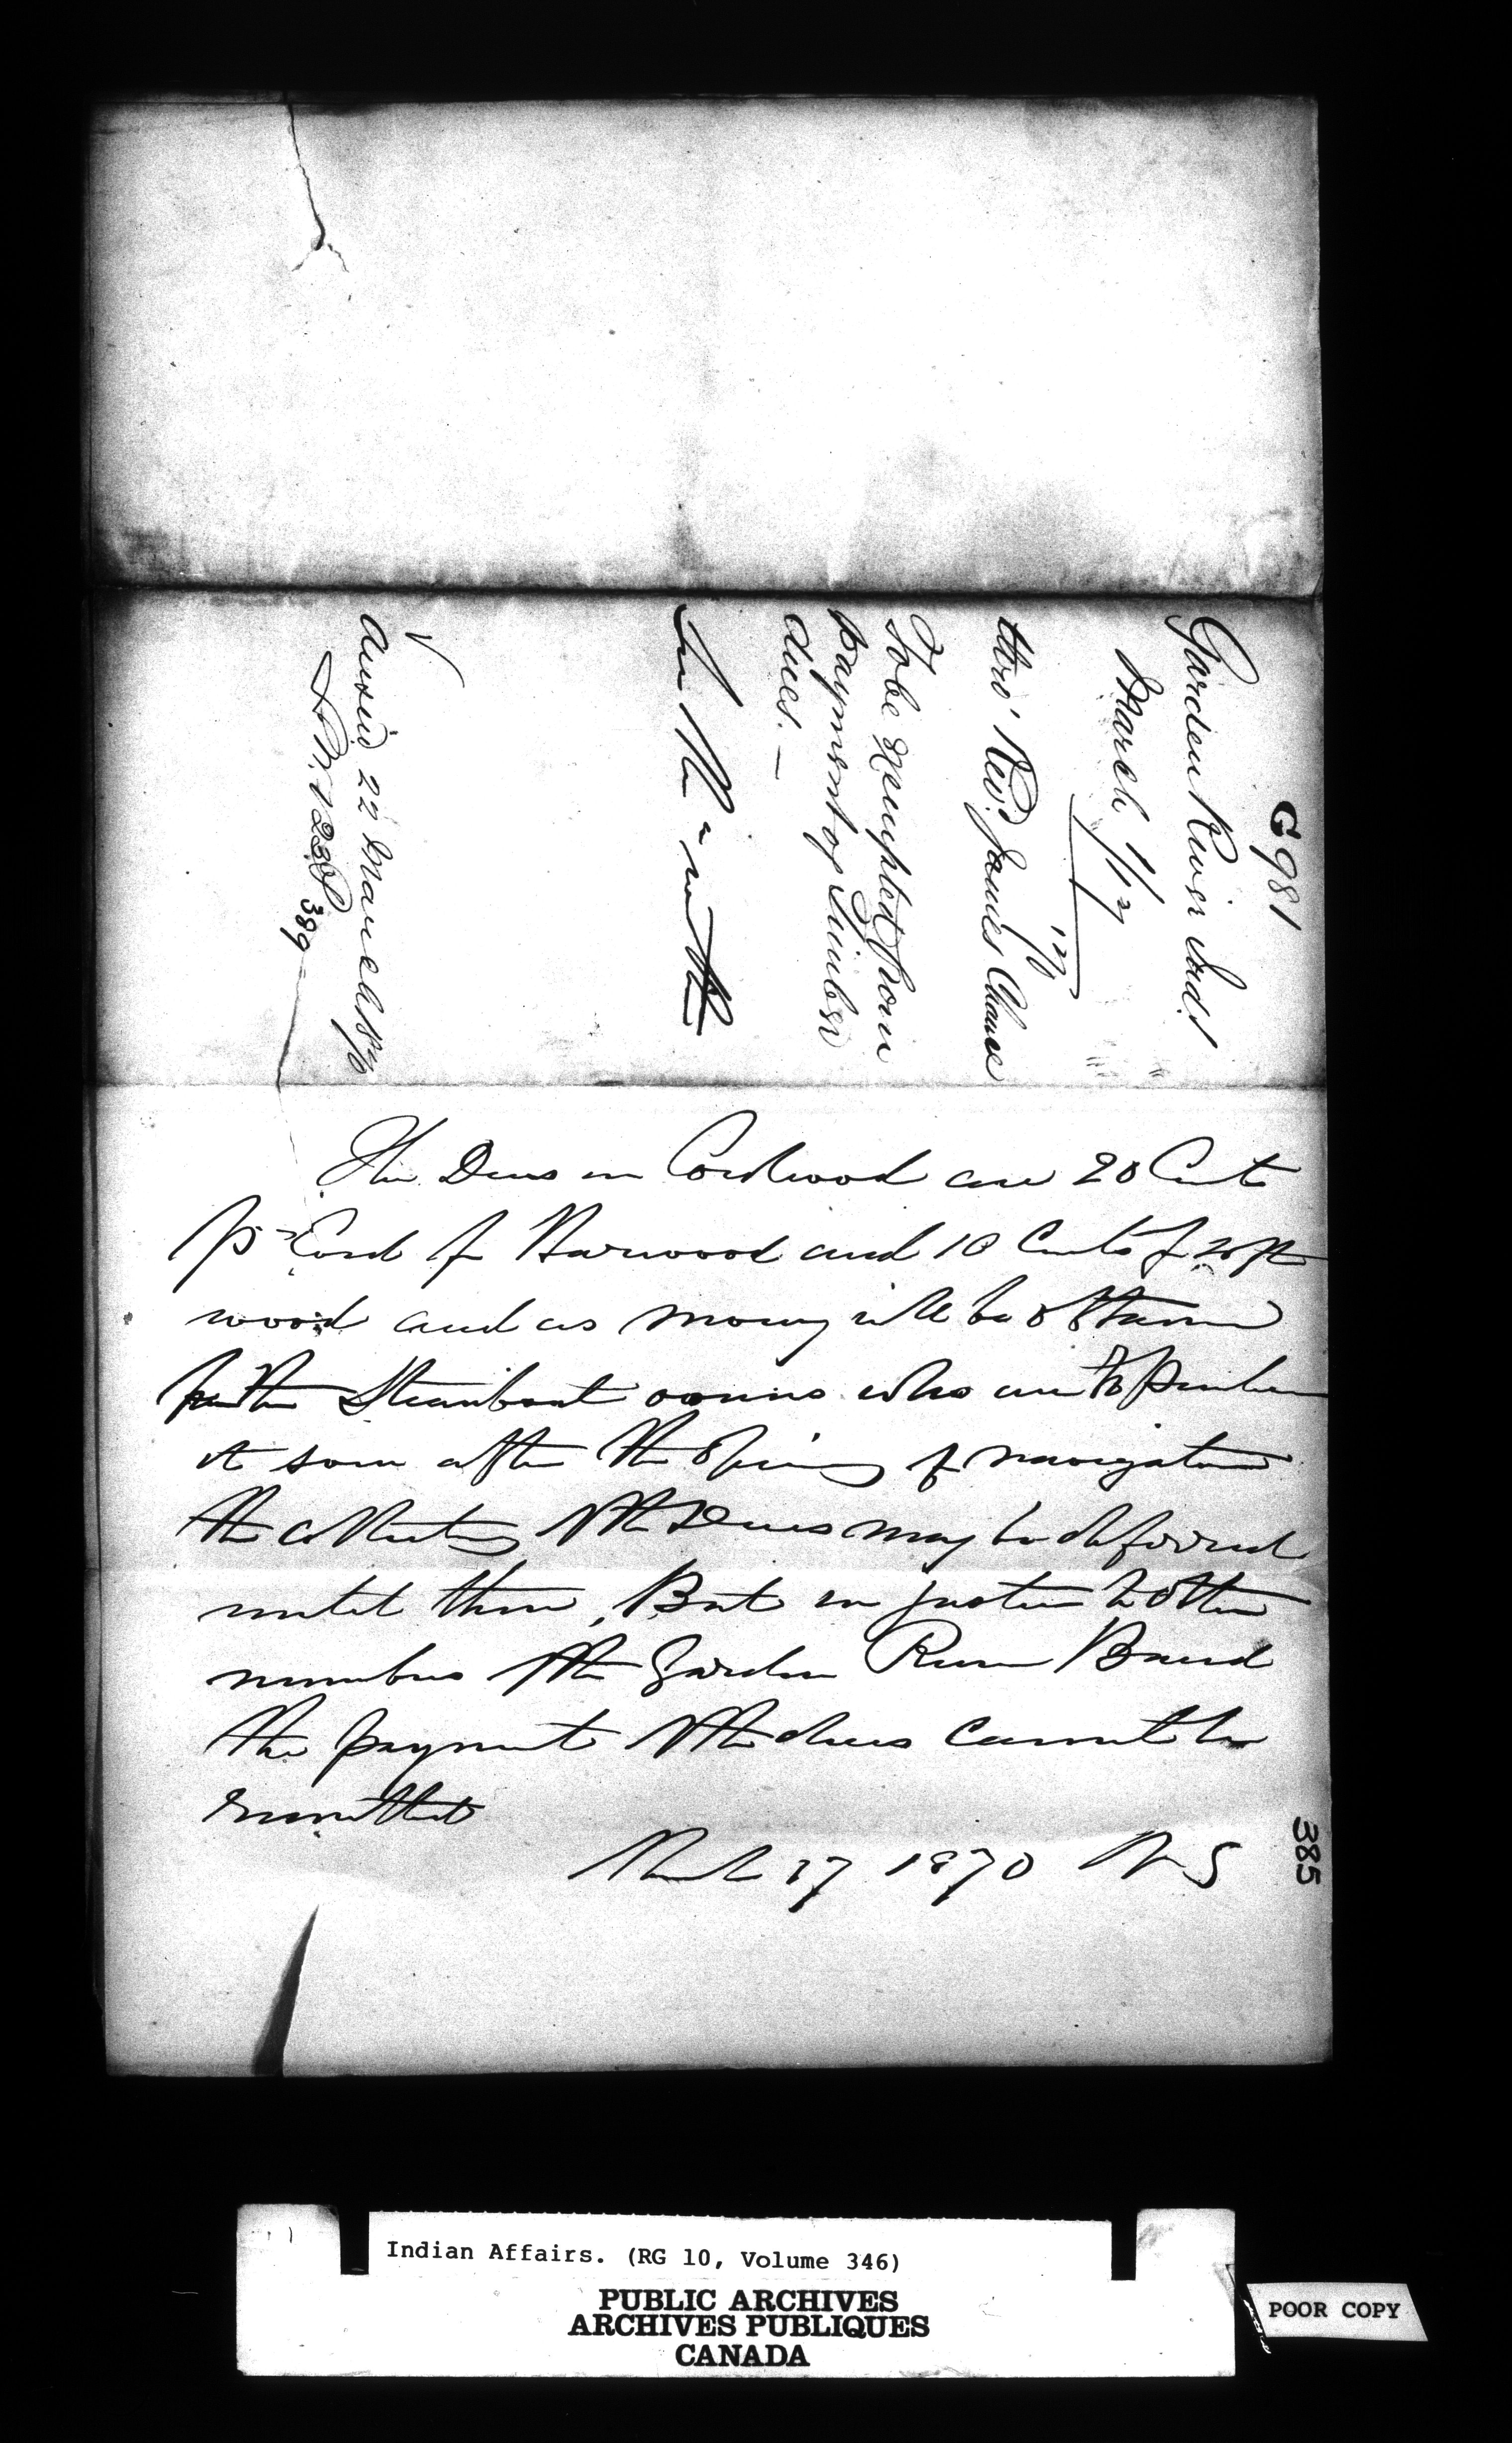 G 981
Garden River Ind.s
March 1/17
70
thro' Rev.d James Chance
To be exempted from
payment of Timber
dues. —
See Mem within
Answd 22 March 1870
389
The Dues on Cordwood are 20 Cents
pr Cord for Harwood and 10 Cents for soft
wood and as money will be obtained
from the Steamboat owners who are to purchase
it soon after the opening of navigation
the collecting of the Dues may be deferred
until then, But in justice to other
members of the Garden River Band
the payment of the dues cannot be
remitted
March 17 1870
385
Indian Affairs. (RG 10, Volume 346)
PUBLIC ARCHIVES
ARCHIVES PUBLIQUES
CANADA
POOR COPY